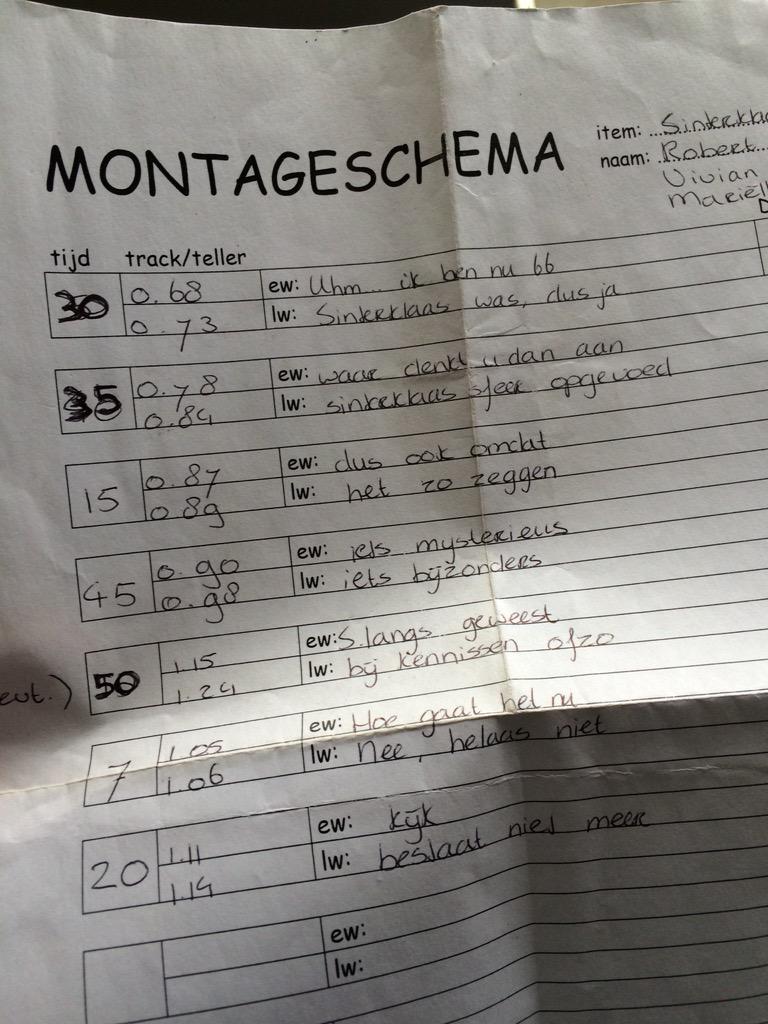 MONTAGESCHEMA
item: Sinterkla
naam: Robert
Vivian
Mariël
tijd track/teller
30 0.68 ew: Uhm... ik ben nu 66
0.73 lw: Sinterklaas was, dus ja
35 0.78 ew: waar denkt u dan aan
0.84 lw: sinterklaas sfeer opgevoed
15 0.87 ew: dus ook omdat
0.89 lw: het zo zeggen
45 0.90 ew: iets mysterieus
0.98 lw: iets bijzonders
50 1.15 ew: S. langs geweest
1.24 lw: bij kennissen ofzo
evt.)
7 1.05 ew: Hoe gaat het nu
1.06 lw: Nee, helaas niet
20 1.11 ew: kijk
1.14 lw: bestaat niet meer
ew:
lw: